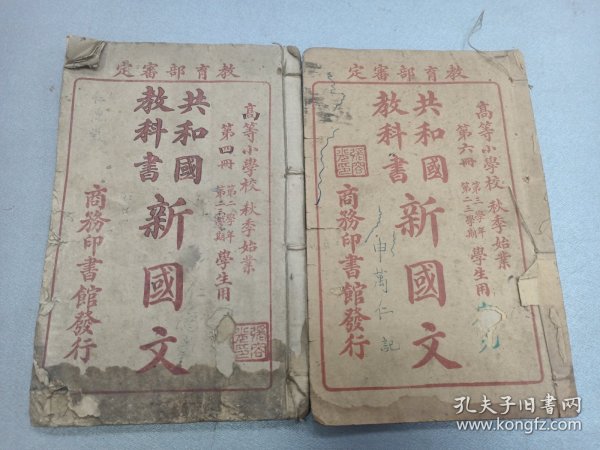 定審部育教
高等小學校 秋季始業
第四冊 第二學年 第二三學期 學生用
共和國
教科書
新國文
商務印書館發行
定審部育教
高等小學校 秋季始業
第六冊 第三學年 第二三學期 學生用
共和國
教科書
新國文
申萬仁記
商務印書館發行
孔夫子旧书网
www.kongfz.com